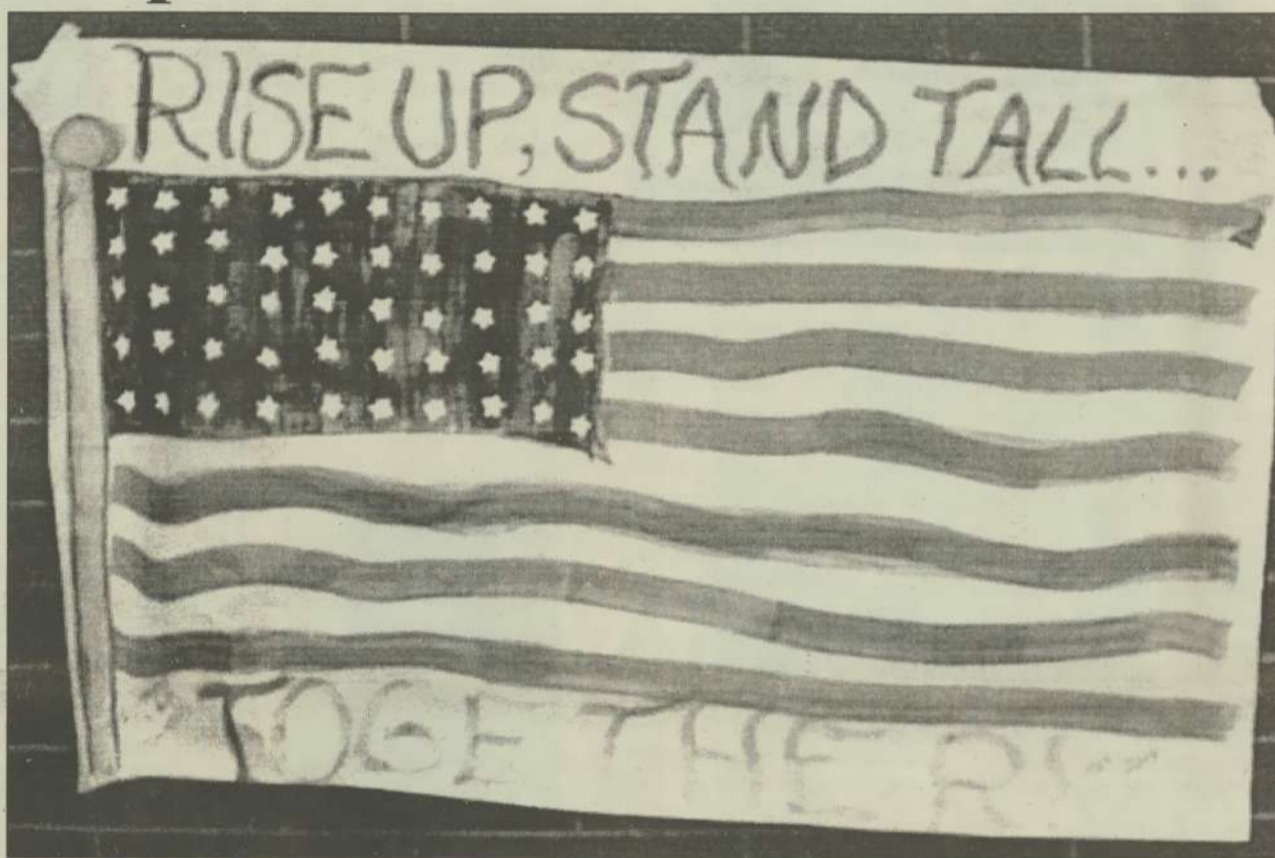 RISE UP, STAND TALL...
TOGETHER!